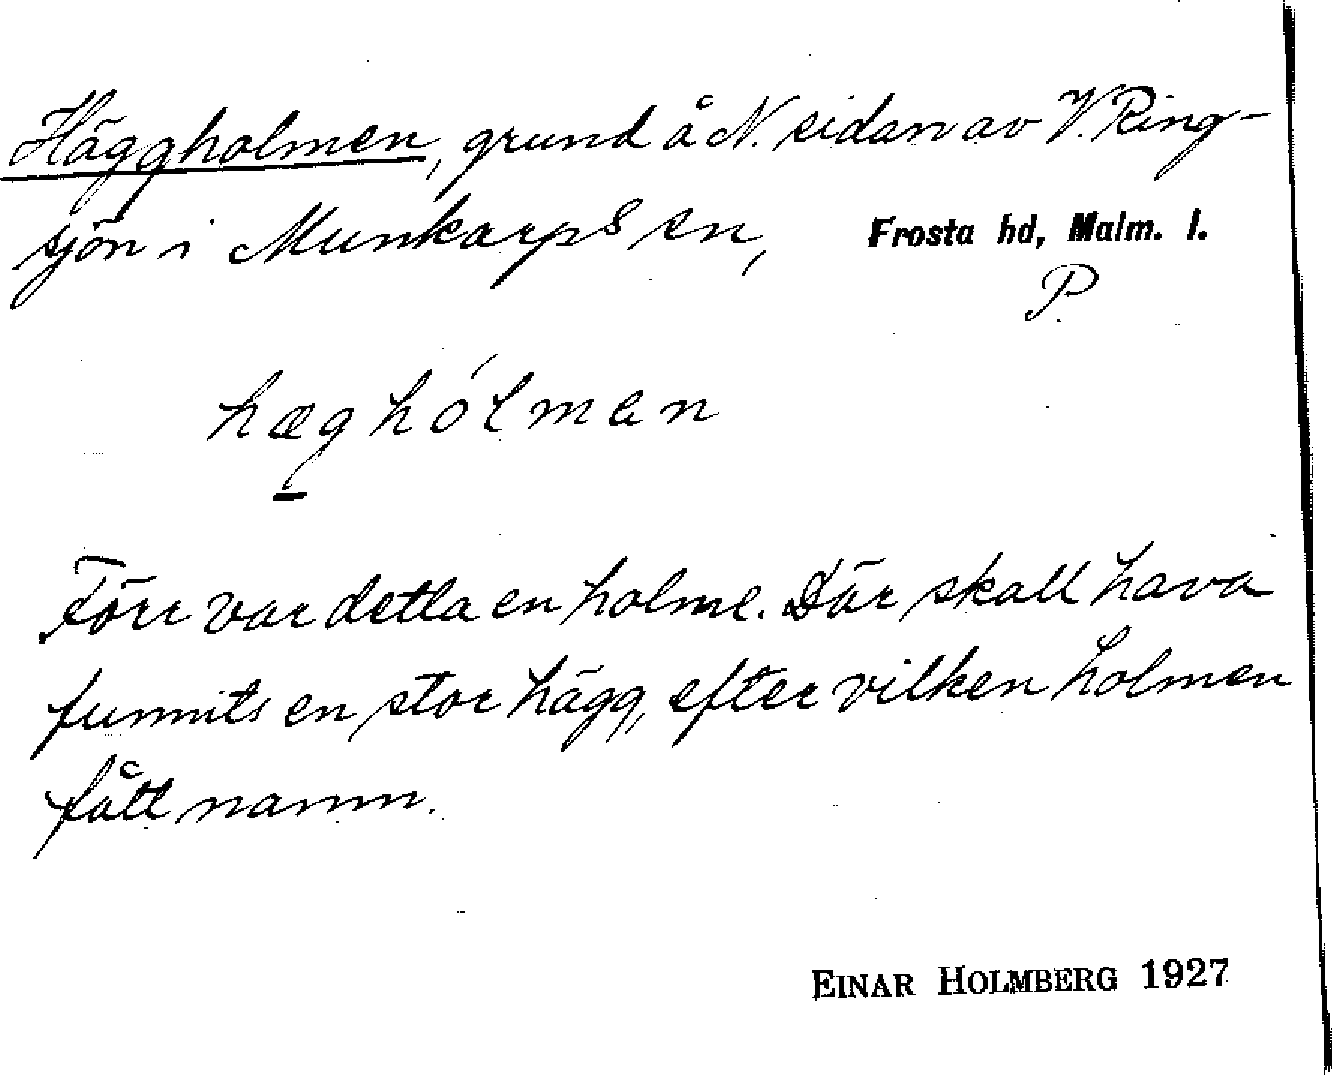 Häggholmen, grund å N. sidan av V. Ring-
sjön i Munkarps sn, Frosta hd, Malm. l.
P
hæghólmen
Förr var detta en holme. Där skall hava
funnits en stor hägg, efter vilken holmen
fått namn.
EINAR HOLMBERG 1927